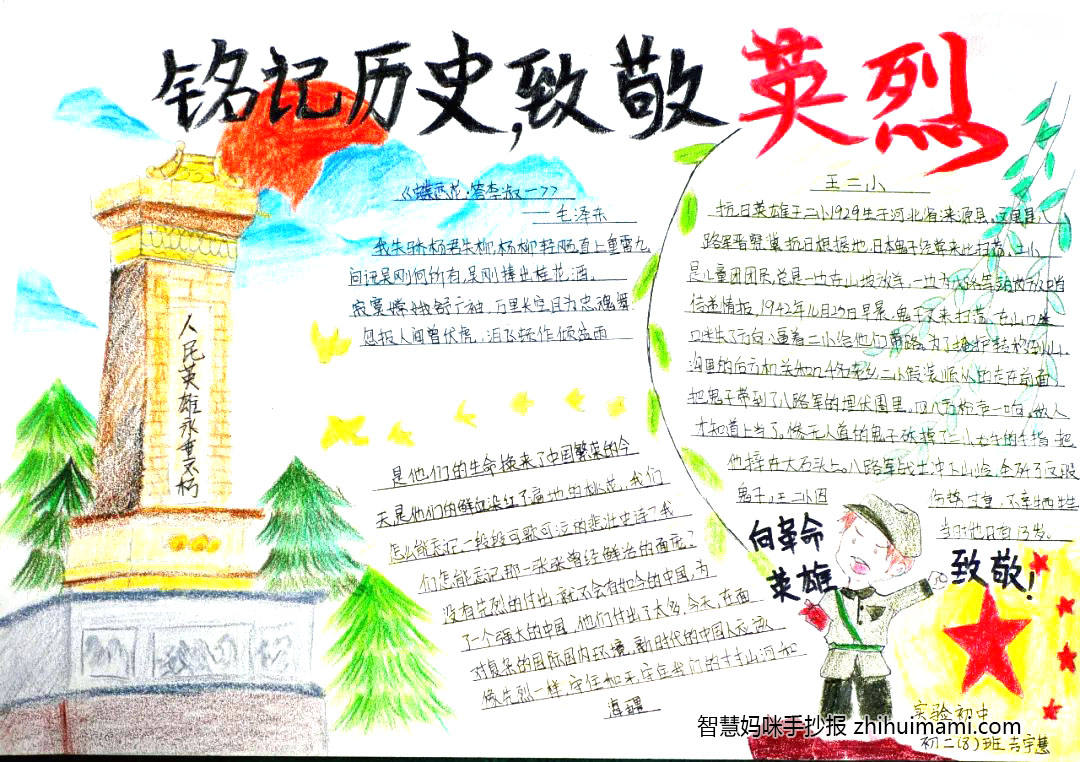 铭记历史,致敬英烈
《蝶恋花·答李淑一》
——毛泽东
我失骄杨君失柳,杨柳轻飏直上重霄九
问讯吴刚何所有,吴刚捧出桂花酒。
寂寞嫦娥舒广袖,万里长空且为忠魂舞
忽报人间曾伏虎,泪飞顿作倾盆雨
人民英雄永垂不朽
是他们的生命换来了中国繁荣的今
天是他们的鲜血染红了遍地的桃花,我们
怎么能忘记一段段可歌可泣的悲壮史诗?我
们怎能忘记那一张张曾经鲜活的面庞?
没有先烈的付出就不会有如今的中国,为
了一个强大的中国,他们付出了太多,今天,在面
对复杂的国际国内环境,新时代的中国人应该
像先烈一样守住初心,守住我们的大好山河和
海疆
王二小
抗日英雄王二小1929生于河北省涞源县,这里是八
路军晋察冀抗日根据地,日本鬼子经常来此扫荡,王二小
是儿童团团员,总是一边在山坡放羊,一边为八路军站岗放哨
传递情报,1942年10月29日早晨,鬼子又来扫荡,在山口岔
口迷失了方向,逼着二小给他们带路,为了掩护转移到山
沟里的后方机关和几千名老乡,二小假装顺从的走在前面
把鬼子带到了八路军的埋伏圈里,四八方枪声一响,敌人
才知道上当了,惨无人道的鬼子砍掉了二小左手的手指,把
他摔在大石头上,八路军战士冲下山岭,全歼了这股
鬼子,王二小因
伤势过重,不幸牺牲
当时他只有13岁。
向革命
英雄
致敬!
实验初中
初二(8)班 吉宇慧
智慧妈咪手抄报 zhihuimami.com